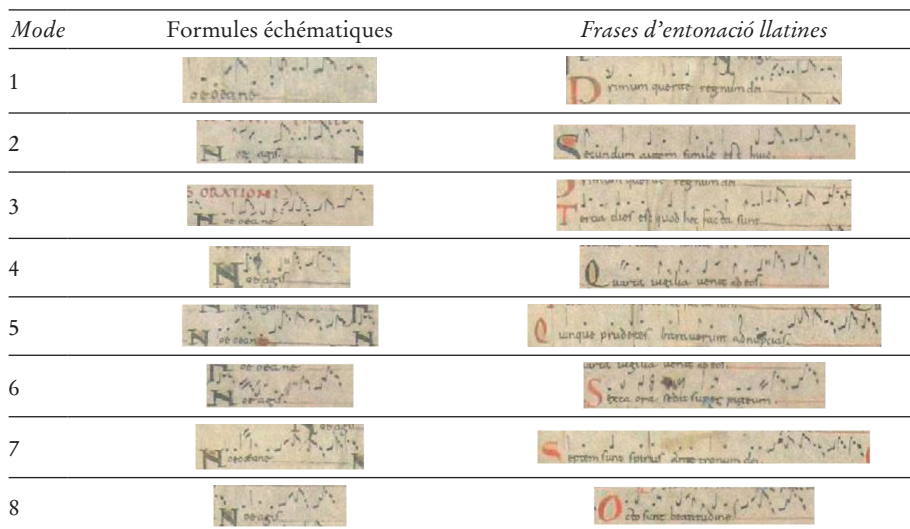 Mode Formules échématiques Frases d’entonació llatines
1
Primum querite regnum dei
2
N oe agis.
Secundum autem simile est huic.
3
N oe oeane
Tercia dies est quod hec facta sunt
4
N oe agis
Quarta uigilia uenit ad eos.
5
N oe oeane
Quinque ad nupcias.
6
N oe agis.
Sexta ora sedit super puteum.
7
N oeoeane
Septem sunt ante tronum dei.
8
N oe agis.
Octo sunt